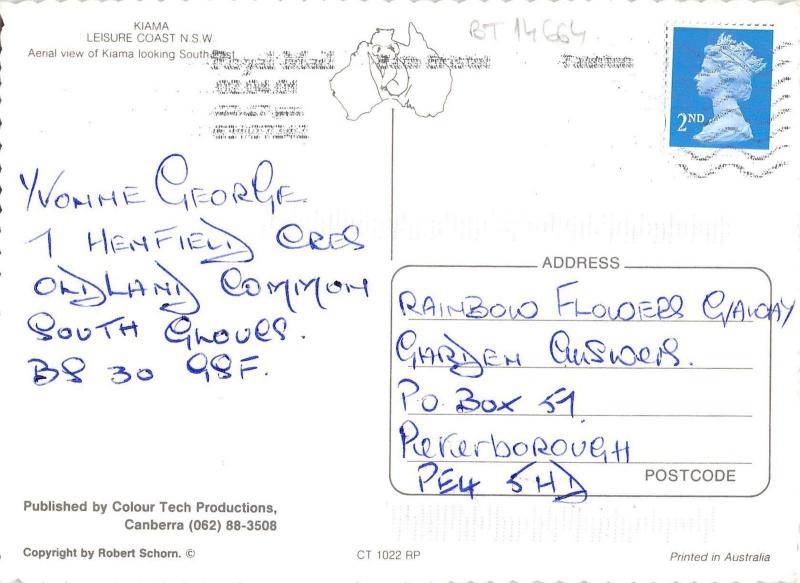 KIAMA
LEISURE COAST N.S.W.
Aerial view of Kiama looking South East
Royal Mail
02.04.01
BT 14664
2ND
YVONNE GEORGE
1 HENFIELD CRES
OLDLAND COMMON
SOUTH GLOUCS.
BS 30 9SF.
ADDRESS
RAINBOW FLOWERS G/AWAY
GARDEN ANSWERS.
PO BOX 51
PETERBOROUGH
PE4 5HD
POSTCODE
Published by Colour Tech Productions,
Canberra (062) 88-3508
Copyright by Robert Schorn. ©
CT 1022 RP
Printed in Australia